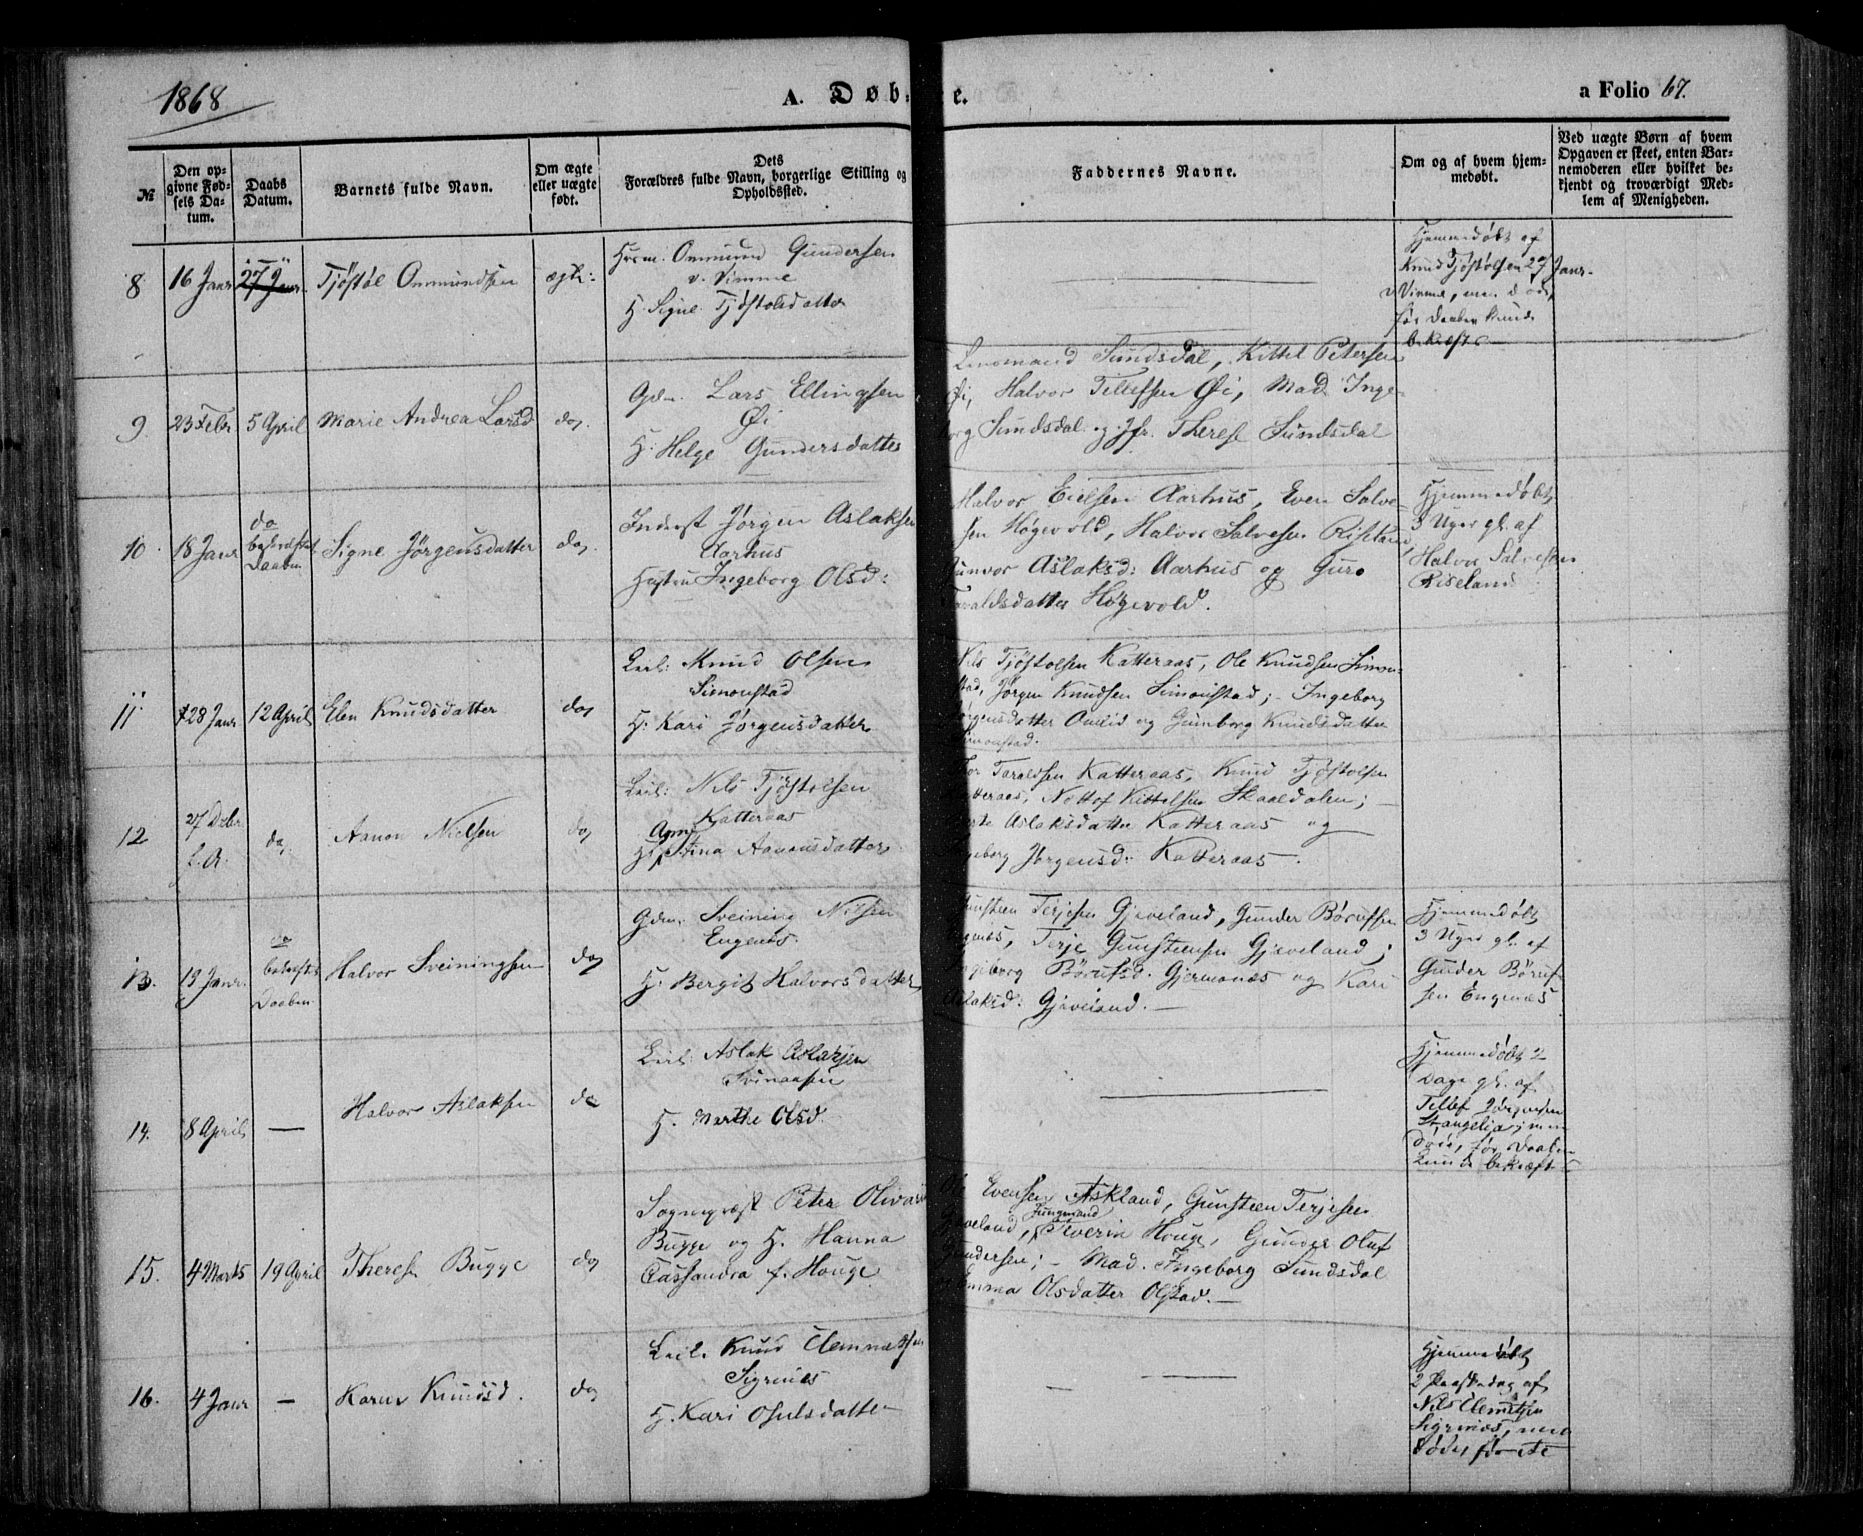 1868
A. Døb-
e.
a Folio 67.
№
Den op-
givne Fød-
sels Da-
tum.
Daabs
Datum.
Barnets fulde Navn.
Om ægte
eller uægte
født.
Dets
Forældres fulde Navn, borgerlige Stilling og
Opholdssted.
Faddernes Navne.
Om og af hvem hjem-
medøbt.
Ved uægte Børn af hvem
Opgaven er skeet, enten Bar-
nemoderen eller hvilket be-
kjendt og troværdigt Med-
lem af Menigheden.
8 16 Janr 27 Janr Tjöstöl Ommundsen ægte:
Ommund Gundersen
v. Vimme
H. Signe Tjöstolsdatter
Hjemmedøbt af
Knud Tjöstolsen 27 Janr
Vimme, men døde,
før Daaben kunde
bekræfts
9. 23 Febr 5 April Marie Andrea Larsd do,
Gdm. Lars Ellingsen
Øi
H. Helge Gundersdatter
Lensmand Sundsdal, Kittel Petersen
Øi, Halvor Tellefsen Øi, Mad. Inge-
borg Sundsdal og Jfr. Therese Sundsdal
10. 18 Janr do
bekræftet
Daaben
Signe Jörgensdatter do,
Inderst Jørgen Aslaksen
Aarhus
Hustru Ingeborg Olsd:
Halvor Eielsen Aarhus, Even Salve-
sen Høgevold, Halvor Salvesen Riseland
Gunvor Aslaksd: Aarhus og Guro
Taraldsdatter Høgevold.
Hjemmedøbt
3 Uger gl. af
Halvor Salvesen
Riseland
11 28 Janr 12 April Elen Knudsdatter do,
Leil: Knud Olsen
Simonstad
H. Kari Jørgensdatter
Nils Tjöstolsen Katteraas, Ole Knudsen Simon-
stad, Jørgen Knudsen Simonstad; - Ingeborg
Jørgensdatter Omlid og Gunborg Knudsdatter
Simonstad.
12 27 Debr
f. A. do, Aanon Nielsen do,
Leil: Nils Tjöstolsen
Katteraas
H. Anne Stina Aanonsdatter
Thor Taraldsen Katteraas, Knud Tjöstolsen
Katteraas, Nottof Kittelsen Skaaldalen; -
Aslaksdatter Katteraas og
Ingeborg Jörgensd: Katteraas.
13. 19 Janr. do
bekræftet
Daaben
Halvor Sveiningsen do,
Gdm. Sveining Nilsen
Engenes.
H. Bergit Halvorsdatter
Gunsteen Terjesen Gjeveland, Gunder Börufsen
Engenæs, Terje Gunsteensen Gjeveland;
Ingeborg Börufsd. Gjermonæs og Kari
Aslaksd. Gjeveland. -
Hjemmedøbt
3 Uger gl. af
Gunder Böruf-
sen Engenæs
14. 8 April — Halvor Aslaksen do
Leil: Aslak Aslaksen
Svinaasen
H. Marthe Olsd.
Hjemmedøbt 2
Dage gl. af
Tellef Jörgensen
Stangelia, men
døde, før Daaben
kunde bekræfts
15. 4 Marts 19 April Therese Bugge do,
Sognepræst Peter Olivarius
Bugge og H. Hanna
Cassandra f. Houge
Ole Evensen Askland, Gunsteen Terjesen
Gjeveland, Jungmand Severin Houge, Gunder Oluf
Gundersen; - Mad. Ingeborg Sundsdal
Emma Olsdatter Olstad. -
16. 4 Janr — Karen Knudsd. do,
Leil. Knud Clemmetsen
Sigrinæs
H. Kari Osulsdatter
Hjemmedøbt
2 Paaskedag af
Nils Clemetsen
Sigrinæs, men
døde